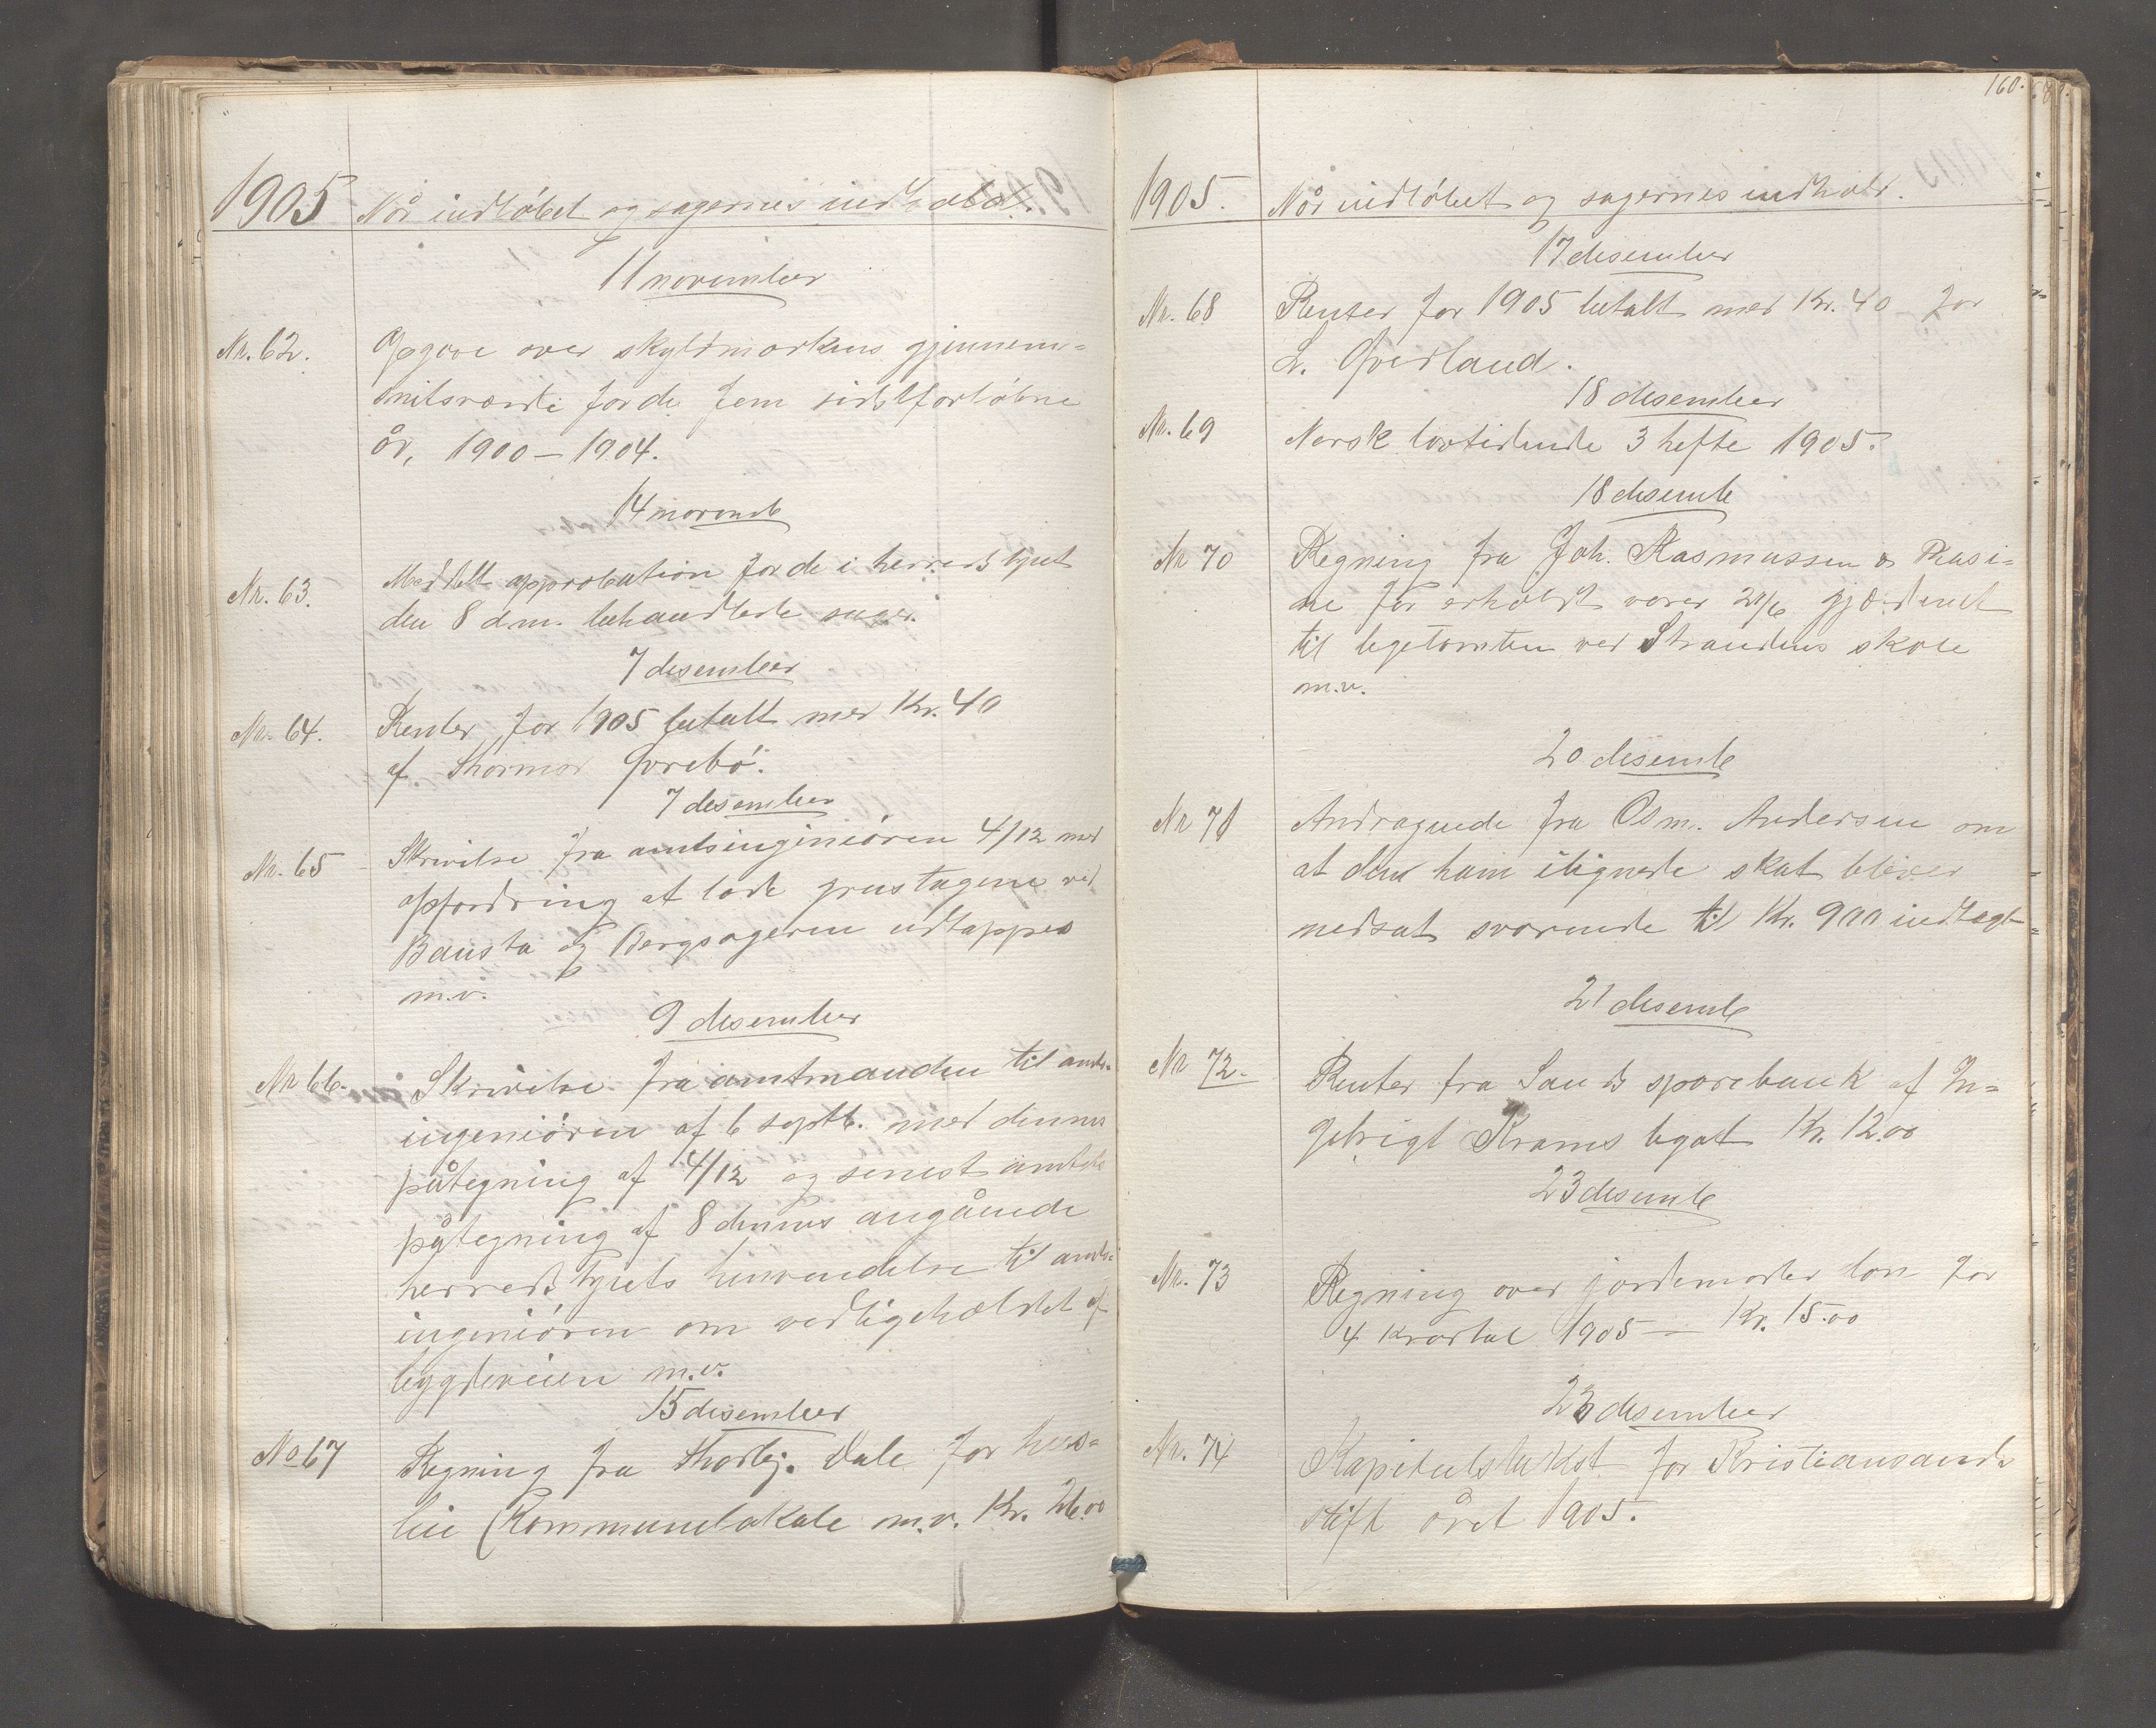 1905 Når indløbet og sagernes indhold.
11 november
Nr. 62. Opgave over skyldmarkens gjennem-
snitsværdi for de fem sidstforløbne
år, 1900 – 1904.
14 novemb
Nr. 63. Meddelt approbation for de i herredstyret
den 8 d.m. behandlede sager.
7 desember
Nr. 64. Renter for 1905 betalt med Kr. 40
af Thormod
7 desember
Nr. 65 Skrivelse fra amtsingeniøren 4/12 med
opfordring at lade grustagene ved
Bausta og Bergsageren udtappes
m.v.
9 desember
Nr 66. Skrivelse fra amtmanden til amts-
ingeniøren af 6 septb. med dennes
påtegning af 4/12 og senest amtets
påtegning af 8 dennes angående
herredstyrets henvendelse til amts-
ingeniøren om vedligeholdet af
bygdeveien m.v.
15 desember
No 67 Regning fra Thorbj. Dale for hus-
leie (Kommunelokale m.v. Kr. 26.00
160.
1905. Når indløbet og sagernes indhold.
17 desember
Nr. 68 Renter for 1905 betalt med Kr. 40 for
L. Øverland.
18 desember
Nr. 69 Norsk lovtidende 3 hefte 1905.
18 desemb
Nr 70 Regning fra Joh. Rasmussen & Rasi-
ne for erholdt varer 21/6 gjærdenet
til legetomten ved Strandens skole
m.v.
20 desemb
Nr 71 Andragende fra Osm. Andersen om
at den ham ilignede skat bliver
nedsat svarende til Kr. 900 indtægt
21 desemb
Nr 72. Renter fra Sands sparebank af In-
gebrigt Krams legat Kr. 12.00
23 desemb
Nr. 73 Regning over jordemoder løn for
4 kvartal 1905 — Kr. 15.00
23 desember
Nr. 74 Kapitelstakst for Kristiansands
stift året 1905.